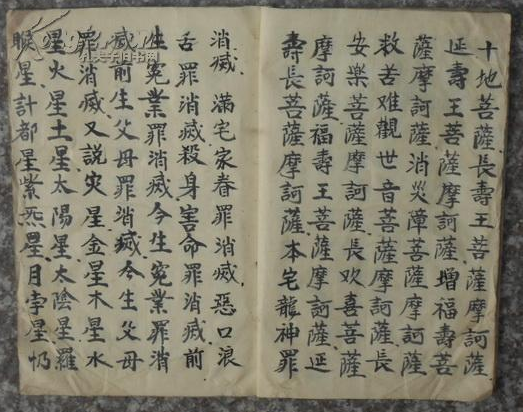 十地菩薩長壽王菩薩摩訶薩
延壽王菩薩摩訶薩增福壽菩
薩摩訶薩消災障菩薩摩訶薩
救苦难觀世音菩薩摩訶薩長
安樂菩薩摩訶薩長欢喜菩薩
摩訶薩福壽王菩薩摩訶薩延
壽長菩薩摩訶薩本宅龍神罪
消滅滿宅家眷罪消滅惡口浪
舌罪消滅殺身害命罪消滅前
生冤業罪消滅今生冤業罪消
滅前生父母罪消滅今生父母
罪消滅又説灾星金星木星水
星火星土星太陽星太陰星羅
睺星計都星紫炁星月孛星